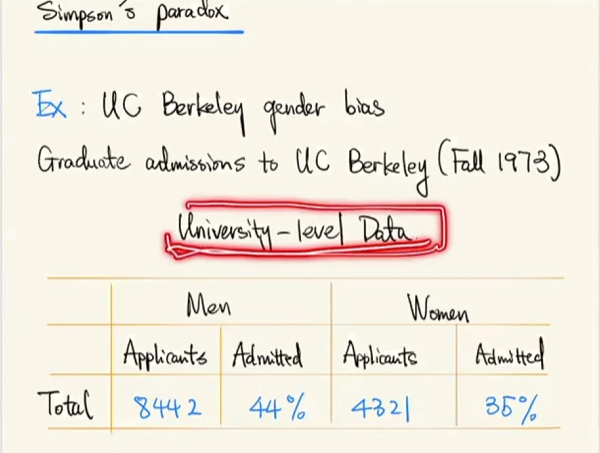 Simpson's paradox
Ex : UC Berkeley gender bias
Graduate admissions to UC Berkeley (Fall 1973)
University-level Data
Men Women
Applicants Admitted Applicants Admitted
Total 8442 44% 4321 35%